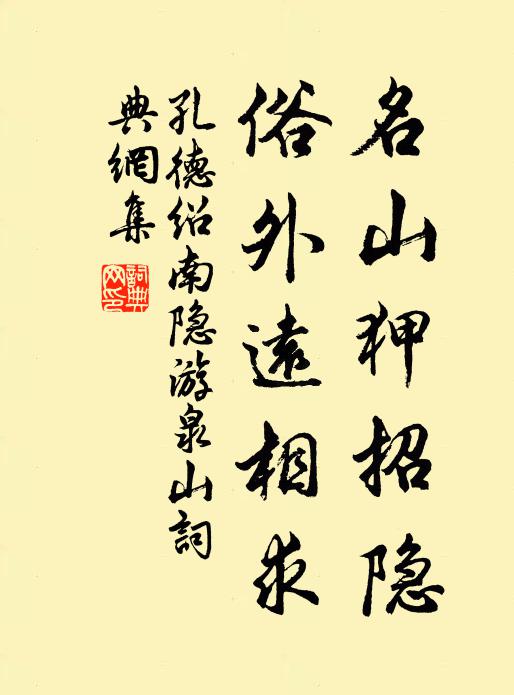 名山狎招隐
俗外遠相求
孔德绍南隐游泉山詞
典網集
詞典网印